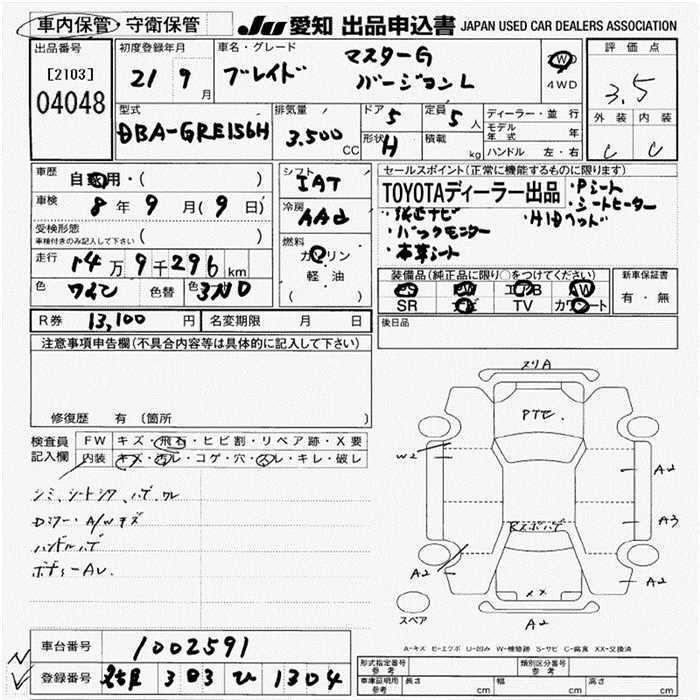 車内保管・守衛保管
JU 愛知 出品申込書 JAPAN USED CAR DEALERS ASSOCIATION
出品番号
[2103]
04048
初度登録年月
21 年 9 月
車名・グレード
ブレイド マスターG
バージョンL
2WD
4WD
評価点
3.5
外装 内装
C C
型式
DBA-GRE156H
排気量
3.500 CC
ドア 5
形状 H
定員 5 人
積載 kg
ディーラー・並行
モデル年式 年
ハンドル 左・右
車歴
自家用・( )
車検
8 年 9 月 (9 日)
受検形態
車検付きのみ記入して下さい ( )
走行
14 万 9 千 296 km
色
ワイン
色替
色No
3N0
シフト
IAT
冷房
AAC
燃料
ガソリン
軽・油
( )
セールスポイント(正常に機能するものに限ります)
TOYOTAディーラー出品
・Pシート
・シートヒーター
・純正ナビ
・HIDヘッド
・バックモニター
・本革シート
装備品(純正品に限り○をつけてください)
PS PW エアB AW
SR ナビ TV カワシート
新車保証書
有・無
後日品
R券 13,100 円
名変期限 月 日
注意事項申告欄(不具合内容等は具体的に記入して下さい)
修復歴 有 (箇所 )
検査員
記入欄
FW キズ・飛石・ヒビ割・リペア跡・X要
内装 キズ・汚レ・コゲ・穴・スレ・キレ・破レ
シミ、シートシワ、ハゲ、ワレ
Dミラー・A/Wキズ
ハンドルハゲ
ボディーAU
スリA
PTE.
W2
A2
A3
Rスポハゲ
A2
A2
XX
A2
スペア
A-キズ E-エクボ U-凹み W-補修跡 S-サビ C-腐食 XX-交換済
車台番号 1002591
登録番号 303 ひ 1304
形式指定番号
参考
類別区分番号
参考
車庫証明用
参考
長さ cm
幅 cm
高さ cm